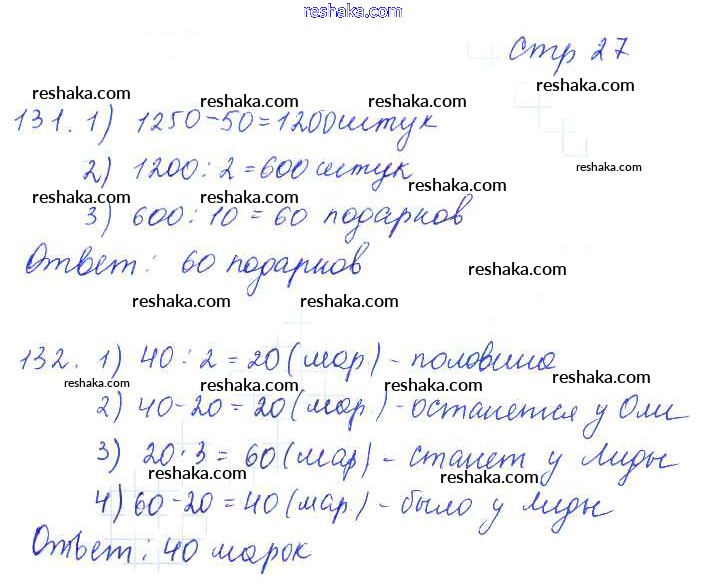 reshaka.com
Стр 27
reshaka.com
reshaka.com
reshaka.com reshaka.com
131. 1) 1250-50=1200штук
reshaka.com
2) 1200:2=600 штук
reshaka.com reshaka.com reshaka.com
3) 600:10=60 подарков
Ответ: 60 подарков
reshaka.com
reshaka.com reshaka.com
132. 1) 40:2=20(мар)-половина
reshaka.com reshaka.com reshaka.com
2) 40-20=20(мар.)-останется у Оли
reshaka.com reshaka.com
3) 20·3=60(мар)-станет у Лиды
reshaka.com reshaka.com
4) 60-20=40(мар)-было у Лиды
Ответ: 40 марок